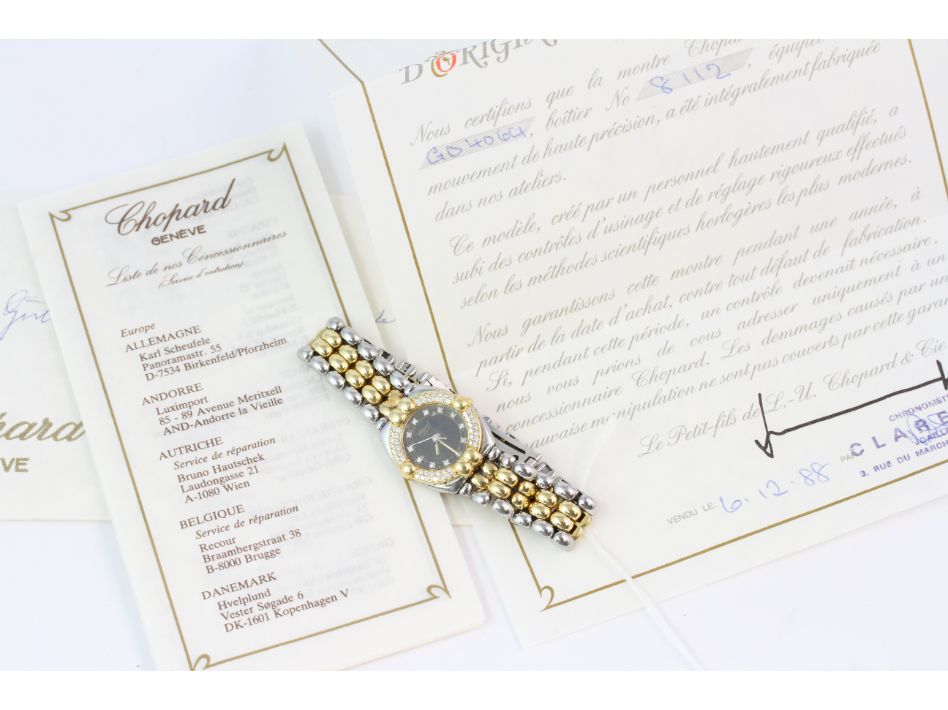 Chopard
GENÈVE
Liste de nos Concessionnaires
(Service d'entretien)
Europe
ALLEMAGNE
Karl Scheufele
Panoramastr. 55
D-7534 Birkenfeld/Pforzheim
ANDORRE
Luximport
85 - 89 Avenue Meritxell
AND-Andorre la Vieille
AUTRICHE
Service de réparation
Bruno Hautschek
Laudongasse 21
A-1080 Wien
BELGIQUE
Service de réparation
Recour
Braambergstraat 38
B-8000 Brugge
DANEMARK
Hvelplund
Vester Søgade 6
DK-1601 Kopenhagen V
opard
ÈVE
D'ORIGI
Nous certifions que la montre Chopard
GD 4064, boîtier No 8112, équipée
mouvement de haute précision, a été intégralement fabriquée
dans nos ateliers.
Ce modèle, créé par un personnel hautement qualifié, a
subi des contrôles d'usinage et de réglage rigoureux effectués
selon les méthodes scientifiques horlogères les plus modernes.
Nous garantissons cette montre pendant une année, à
partir de la date d'achat, contre tout défaut de fabrication.
Si, pendant cette période, un contrôle devenait nécessaire,
nous vous prions de vous adresser uniquement à un
concessionnaire Chopard. Les dommages causés par un
mauvaise manipulation ne sont pas couverts par cette garan
Le Petit-fils de L.-U. Chopard & Cie
VENDU LE 6.12.88 PAR
CHRONOMÉT
CLARE
3, RUE DU MARCH